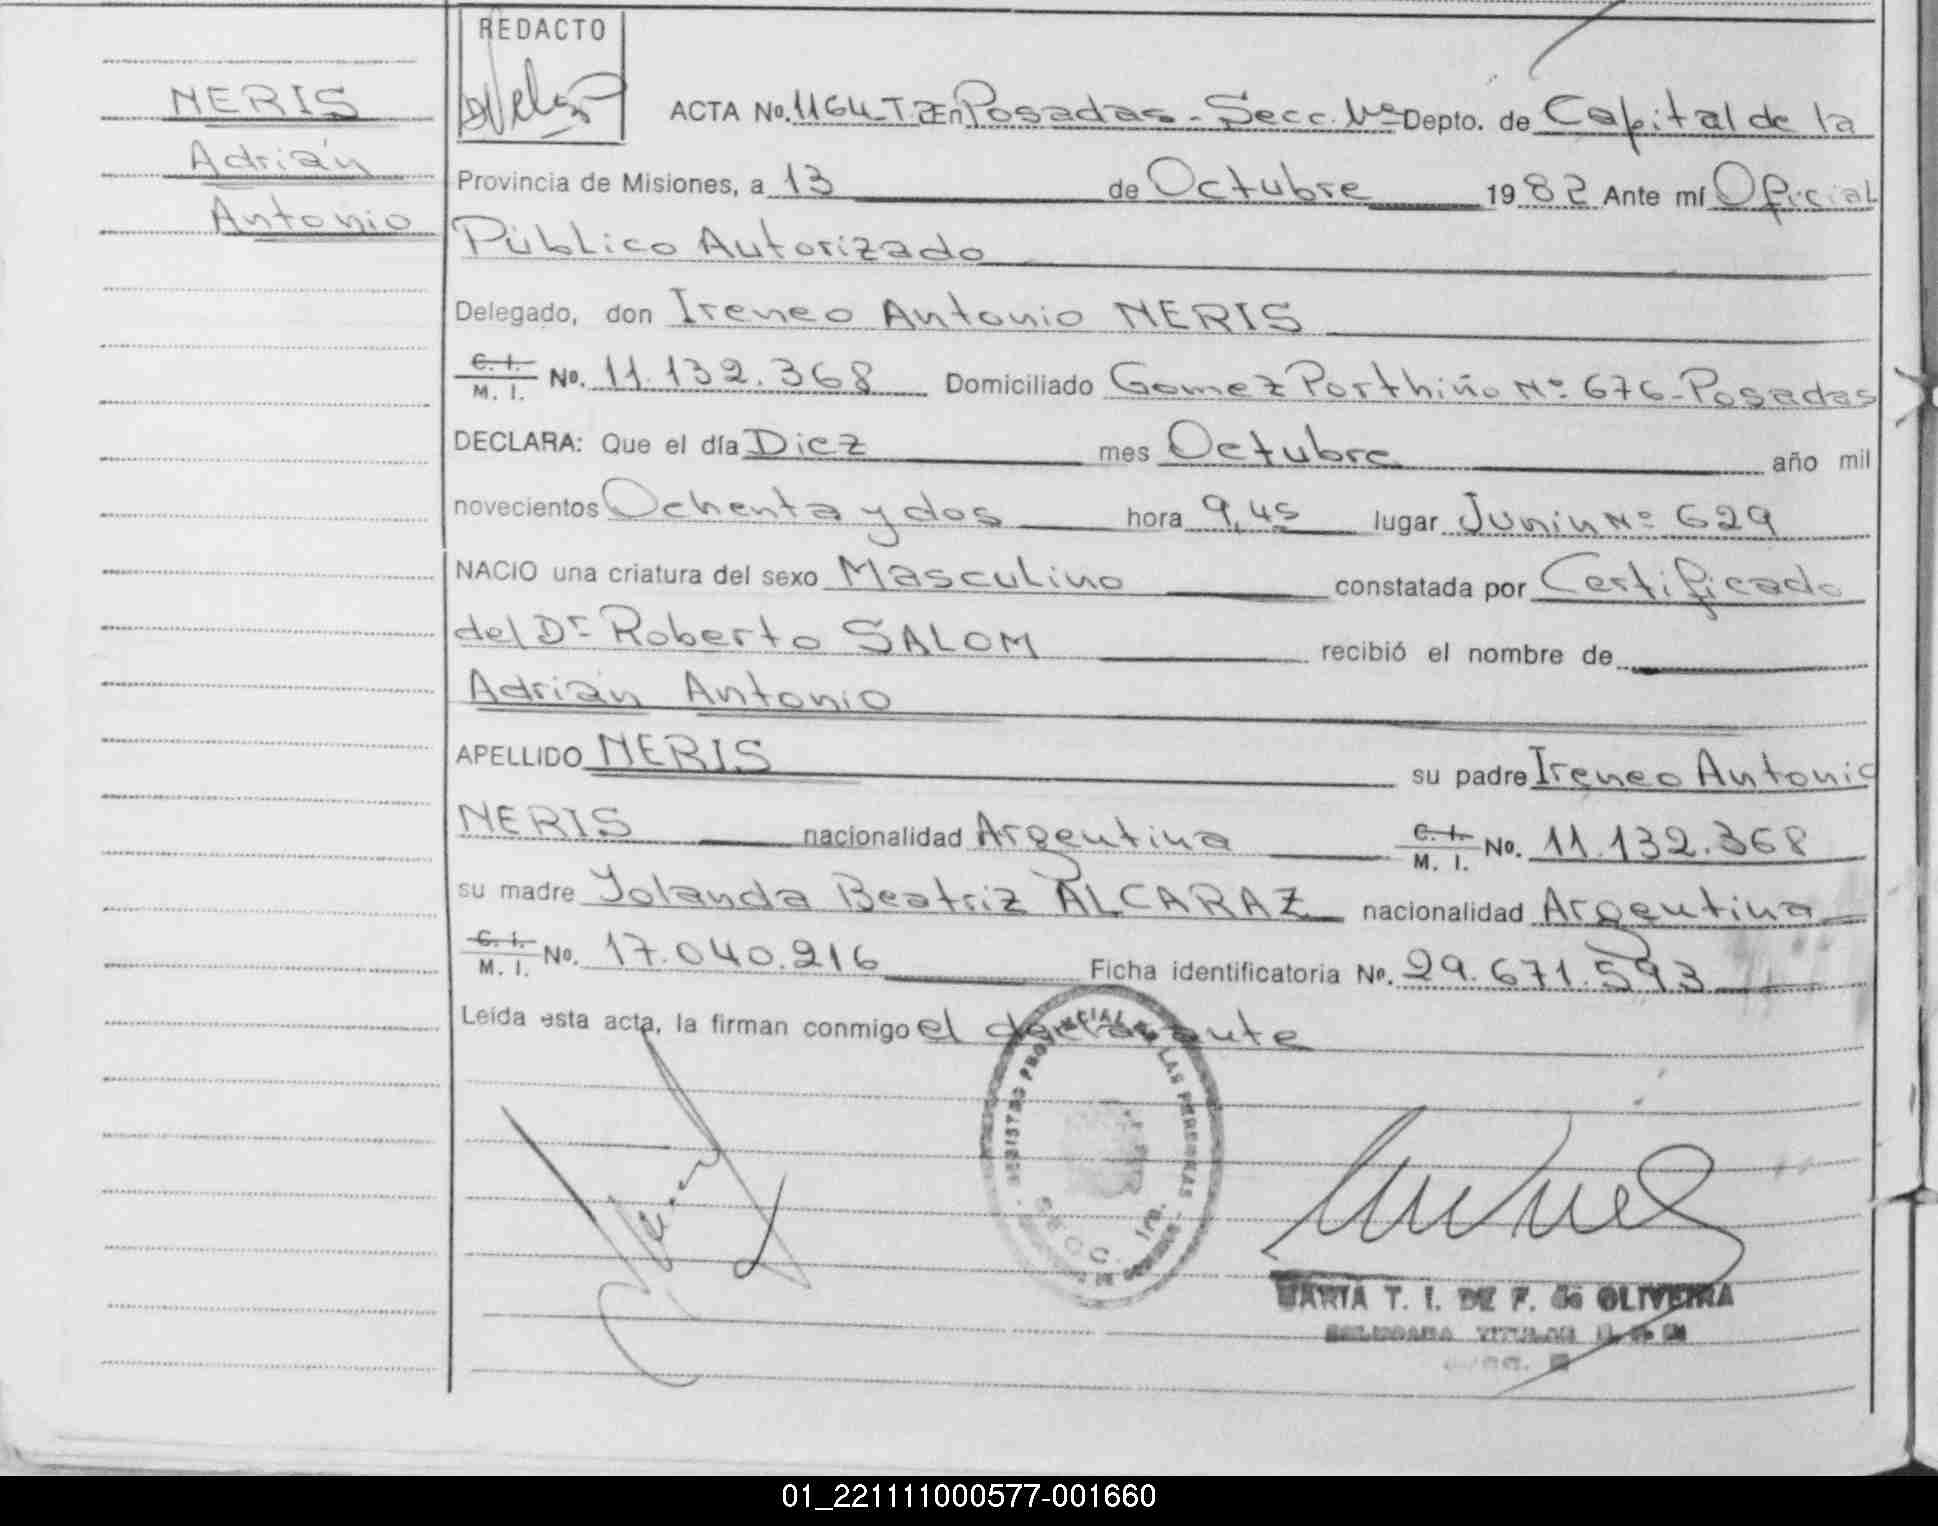 REDACTO
NERIS
Adrián
Antonio
ACTA No. 1164 T.2 En Posadas - Secc. 1ª Depto. de Capital de la
Provincia de Misiones, a 13 de Octubre 1982 Ante mí Oficial
Público Autorizado
Delegado, don Ireneo Antonio NERIS
C. I. / M. I. No. 11.132.368 Domiciliado Gomez Porthiño Nº 676 - Posadas
DECLARA: Que el día Diez mes Octubre año mil
novecientos Ochenta y dos hora 9,45 lugar Junin Nº 629
NACIO una criatura del sexo Masculino constatada por Certificado
del Dr Roberto SALOM recibió el nombre de
Adrián Antonio
APELLIDO NERIS su padre Ireneo Antonio
NERIS nacionalidad Argentina C. I. / M. I. No. 11.132.368
su madre Yolanda Beatriz ALCARAZ nacionalidad Argentina
C. I. / M. I. No. 17.040.216 Ficha identificatoria No. 29.671.593
Leída esta acta, la firman conmigo el declarante
REGISTRO PROVINCIAL DE LAS PERSONAS
SECC. 1ra.
MARTA T. I. DE F. de OLIVEIRA
TITULAR
01_221111000577-001660